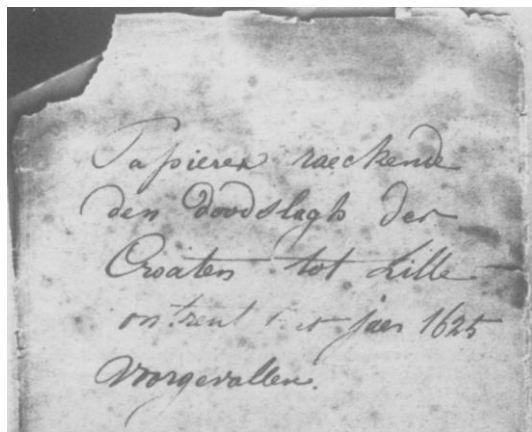 Papieren raeckende
den doodslagh der
Croaten tot Lille
ontrent het jaer 1625
voorgevallen.